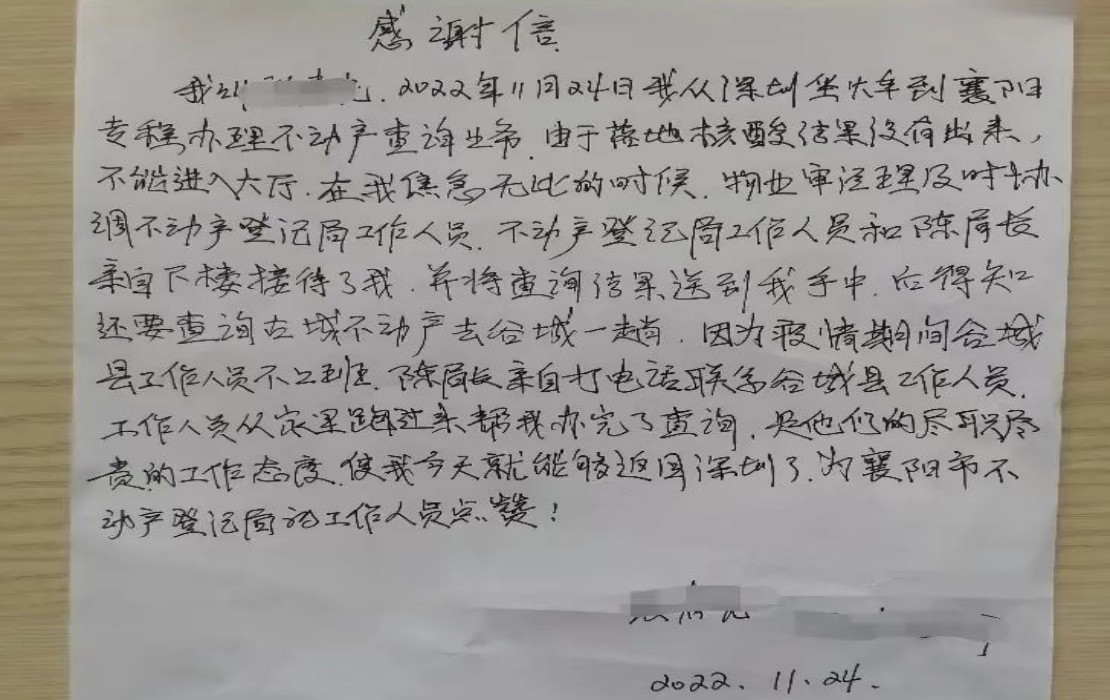 感谢信
我叫 2022年11月24日我从深圳坐火车到襄阳
专程办理不动产查询业务.由于落地核酸结果没有出来,
不能进入大厅.在我焦急无比的时候.物业审经理及时协
调不动产登记局工作人员.不动产登记局工作人员和陈局长
亲自下楼接待了我.并将查询结果送到我手中.后得知
还要查询古城不动产去谷城一趟.因为疫情期间谷城
县工作人员不上班.陈局长亲自打电话联系谷城县工作人员.
工作人员从家里跑过来帮我办完了查询.是他们的尽职尽
责的工作态度.使我今天就能够返回深圳了.为襄阳市不
动产登记局的工作人员点赞!
2022.11.24.